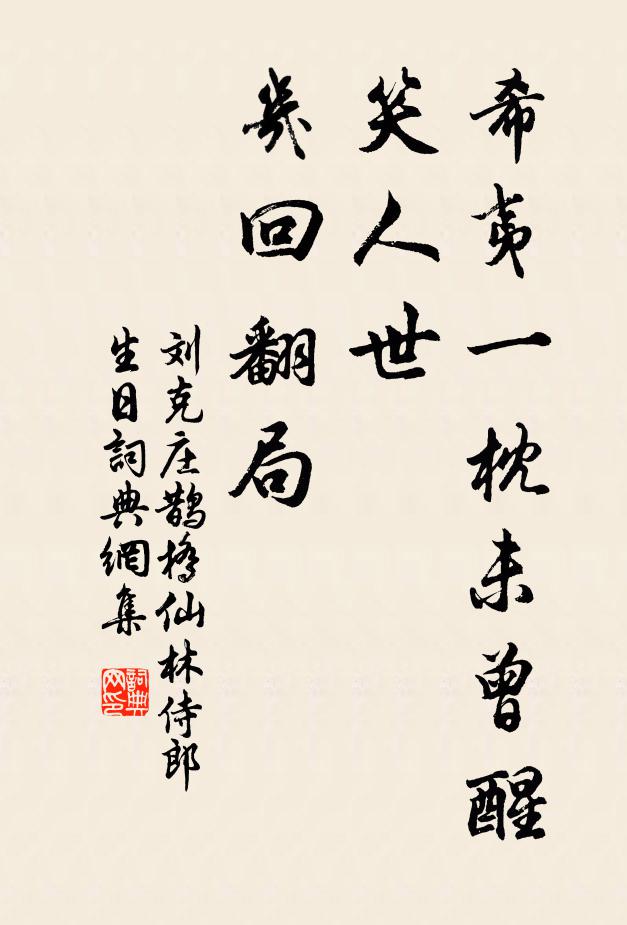 希夷一枕未曾醒
笑人世
几回翻局
刘克庄鹊橋仙林侍郎
生日詞典網集
詞典网印